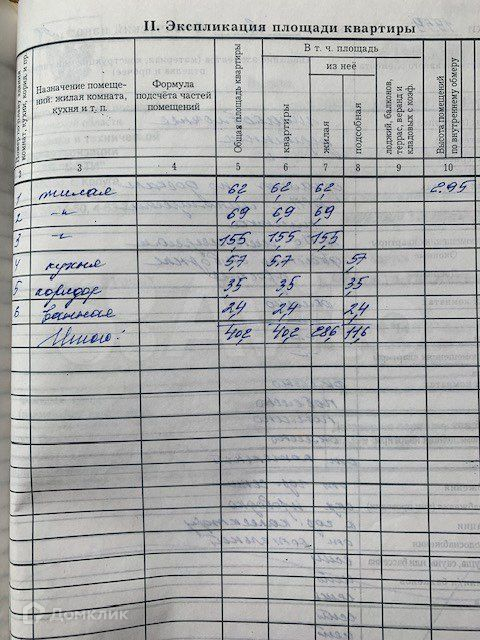 II. Экспликация площади квартиры
Назначение помеще-
ний: жилая комната,
кухня и т. п.
Формула
подсчёта частей
помещений
Общая площадь квартиры
В т. ч. площадь
квартиры
из неё
жилая
подсобная
лоджий, балконов,
террас, веранд и
кладовых с коэф.
Высота помещений
по внутреннему обмеру
2 3 4 5 6 7 8 9 10
1 жилая 6,2 6,2 6,2 2.95
2 -"- 6,9 6,9 6,9
3 -"- 15,5 15,5 15,5
4 кухня 5,7 5,7 5,7
5 коридор 3,5 3,5 3,5
6 Ванная 2,4 2,4 2,4
Итого: 40,2 40,2 28,6 11,6
Домклик